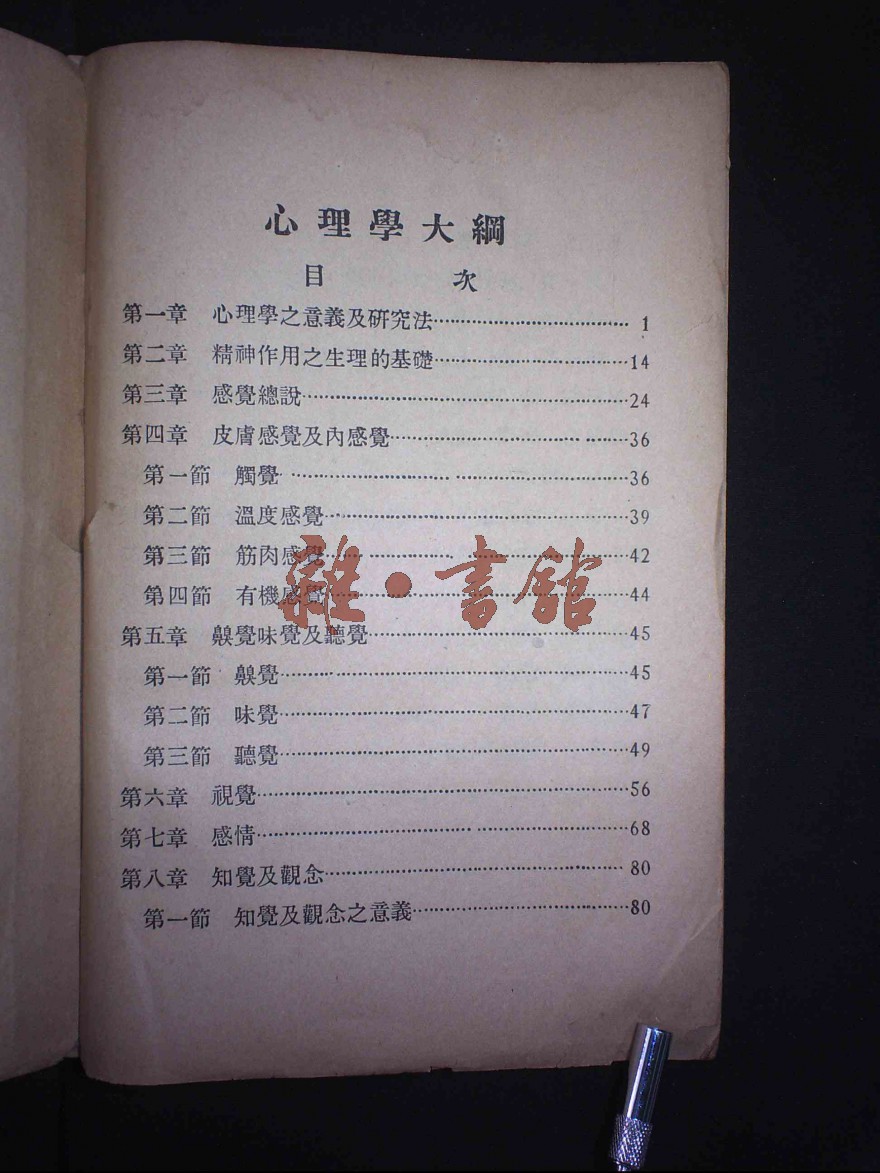 心理學大綱
目次
第一章 心理學之意義及硏究法…………………………… 1
第二章 精神作用之生理的基礎……………………………14
第三章 感覺總說……………………………24
第四章 皮膚感覺及內感覺……………………………36
第一節 觸覺……………………………36
第二節 溫度感覺……………………………39
第三節 筋肉感覺……………………………42
第四節 有機感覺……………………………44
雜·書館
第五章 齅覺味覺及聽覺……………………………45
第一節 齅覺……………………………45
第二節 味覺……………………………47
第三節 聽覺……………………………49
第六章 視覺……………………………56
第七章 感情……………………………68
第八章 知覺及觀念……………………………80
第一節 知覺及觀念之意義……………………………80